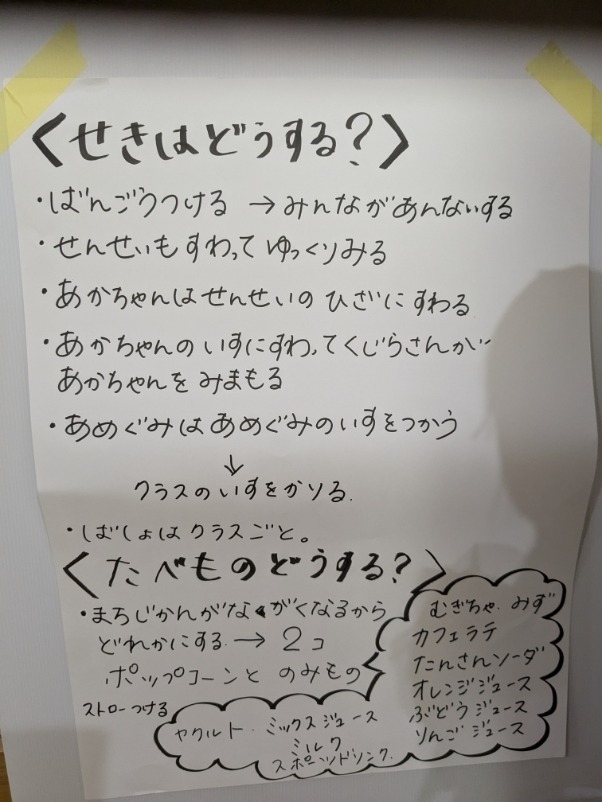 〈せきはどうする?〉
・ばんごうつける → みんながあんないする
・せんせいもすわって ゆっくりみる
・あかちゃんはせんせいの ひざにすわる
・あかちゃんの いすにすわってくじらさんが
あかちゃんを みまもる
・あめぐみは あめぐみのいすをつかう
↓
クラスのいすをかりる.
・ばしょは クラスごと。
〈たべものどうする?〉
・まちじかんがながくなるから
どれかにする → 2コ
ポップコーンと のみもの
ストローつける
むぎちゃ. みず
カフェラテ
たんさんソーダ
オレンジジュース
ぶどうジュース
りんごジュース
ヤクルト. ミックスジュース
ミルク
スポーツドリンク.